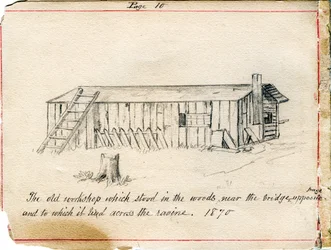 Page 10
The old workshop which stood in the woods, near the bridge, opposite
and to which it led across the ravine. 1870